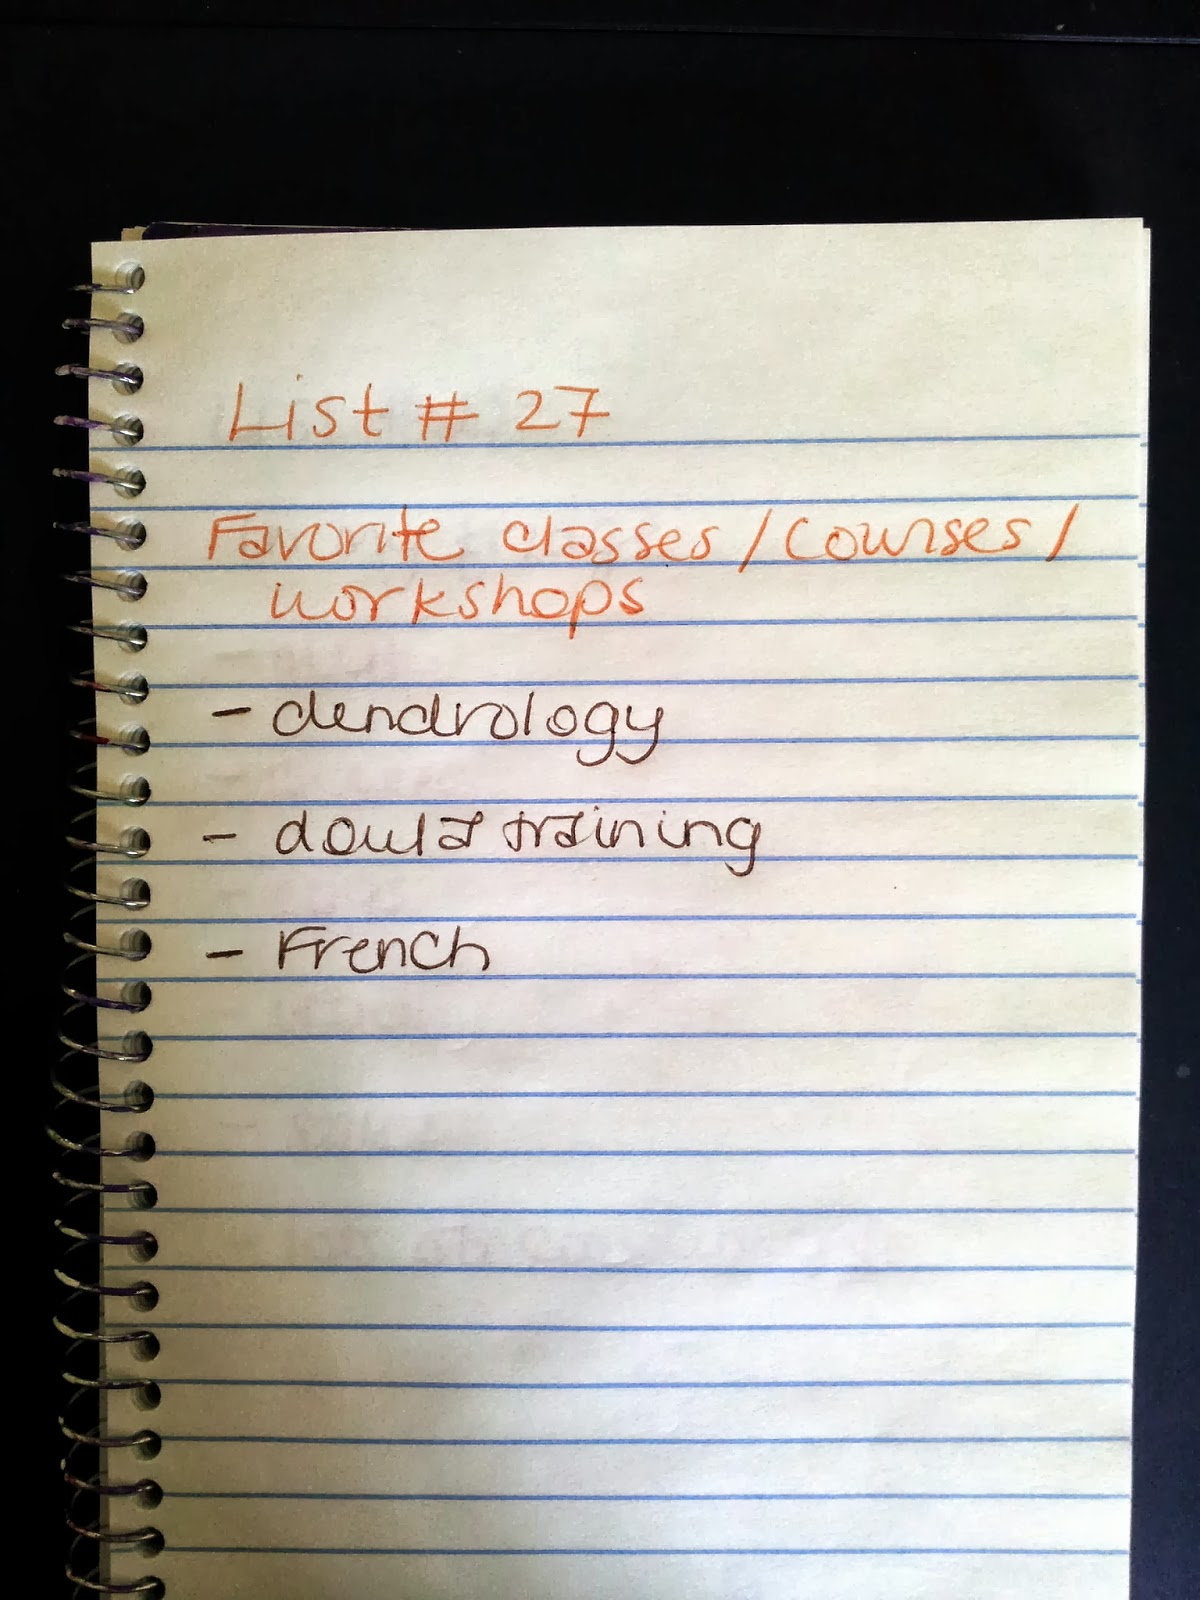 List # 27
Favorite classes / courses /
workshops
- dendrology
- doula training
- French